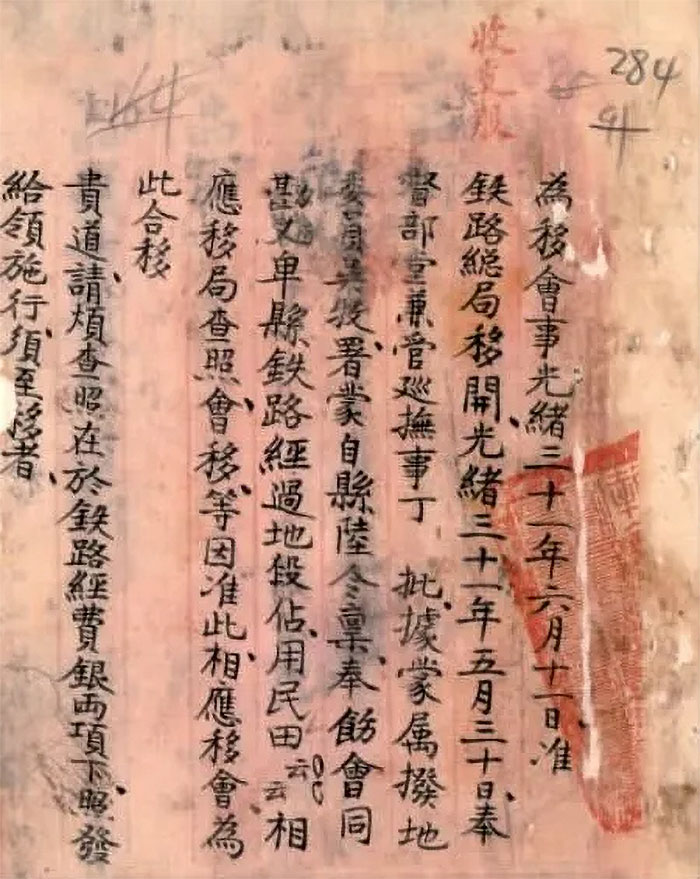 284
收支股
為移會事光緒三十一年六月十一日准
鉄路總局移開光緒三十一年五月三十日奉
督部堂兼管巡撫事丁 批據蒙属撥地
委員吳牧署蒙自縣陸令稟奉飭會同
勘丈卑縣鉄路經過地段佔用民田云云相
應移局查照會移等因准此相應移會為
此合移
貴道請煩查照在於鉄路經費銀兩項下照發
給領施行須至移者